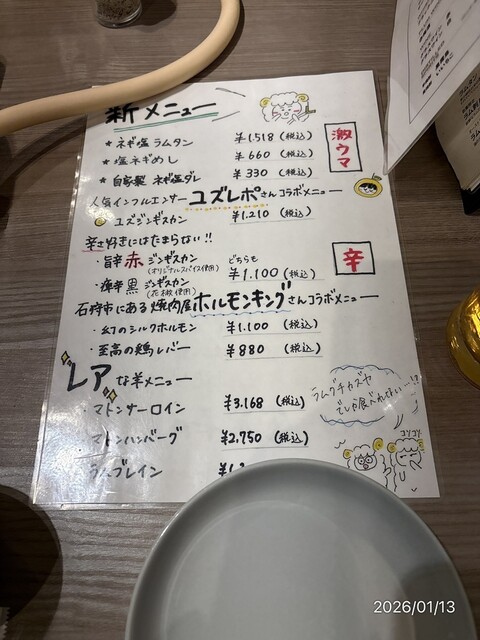 新メニュー
★ ネギ塩 ラムタン ¥1,518 (税込)
★ 塩ネギめし ¥660 (税込)
★ 自家製 ネギ塩ダレ ¥330 (税込)
激ウマ
人気インフルエンサー ユズレポさんコラボメニュー
ユズジンギスカン ¥1,210 (税込)
辛さ好きにはたまらない!!
・旨辛 赤 ジンギスカン どちらも
(オリジナルスパイス使用) ¥1,100 (税込)
辛
黒 ジンギスカン
(花椒使用)
石狩市にある焼肉屋ホルモンキングさんコラボメニュー
・幻のシルクホルモン ¥1,100 (税込)
・至高の鶏レバー ¥880 (税込)
レアな羊メニュー
マトンサーロイン ¥3,168 (税込)
マトンハンバーグ ¥2,750 (税込)
ラムブレイン
ラムグチャズヤ
でしか食べれないー!?
コソコソ
ラムタン
2026/01/13